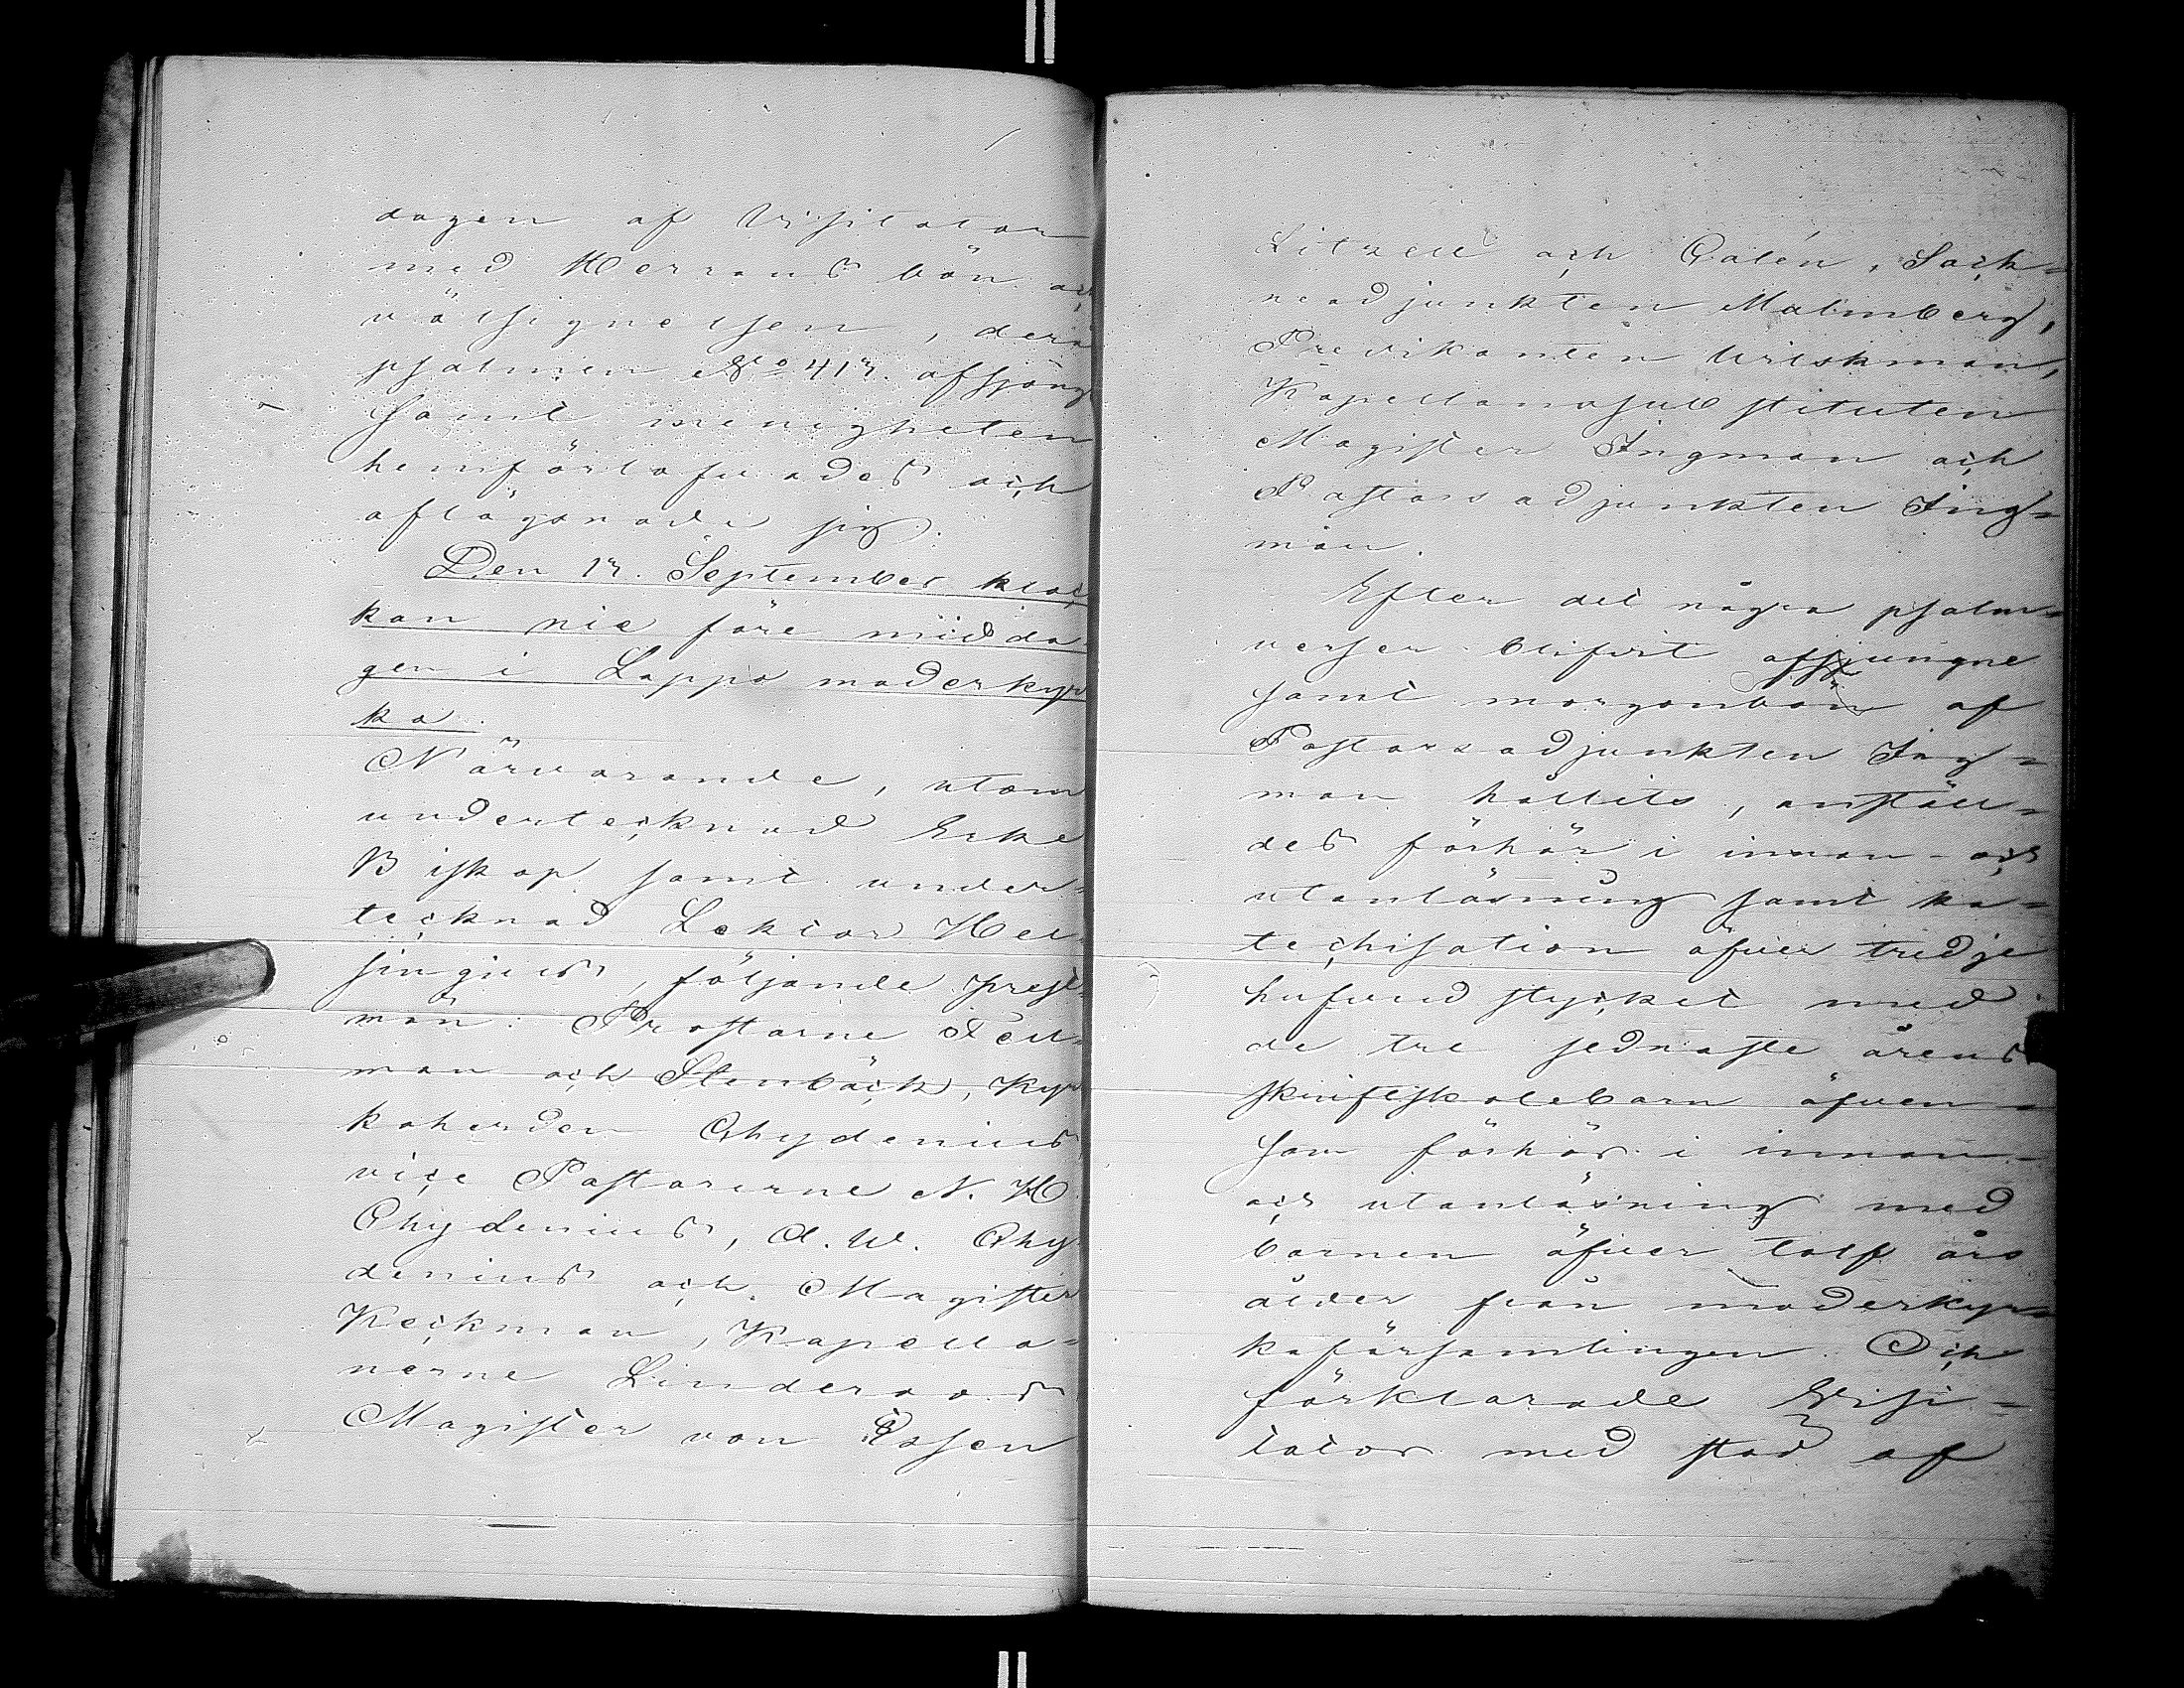 dagen af Visitator
med Herrans bön och
välsignelsen, dera
psalmen No 413. afsjöng
samt menigheten
hemförlofvades och
aflägsnade sig.
Den 13. September kloc
kan nie före midda
gen i Lappo moderkyr
ka.
Närvarande, utom
undertecknad Erke
Biskop samt under-
tecknad Lektor Hel
singius, följande prest
män: Prostarne Fell-
man och Stenbäck, Kyr
koherden Chydenius
vice Pastorerne N. H
Chydenius, A. W. Chy
denius och Magister
Keckman, Kapella-
nerne Linderoos
Magister von Essen
Litzell och Calén, Sock-
neadjunkten Malmberg,
Predikanten Wilskman,
Kapellanssubstituten
Magister Ingman och
Pastorsadjunkten Ing-
man.
Efter det några psalm-
verser blifvit afsjungne
samt morgonbön af
Pastorsadjunkten Ing-
man hållits, anställ-
des förhör i innan- och
utanläsning samt ka-
techisation öfver tredje
hufvudstycket med
de tre sednaste årens
skriftskolebarn äfven-
som förhör i innan-
och utanläsning med
barnen öfver tolf års
ålder från moderkyr-
koförsamlingen. Och
förklarade Visi-
tator med stöd af